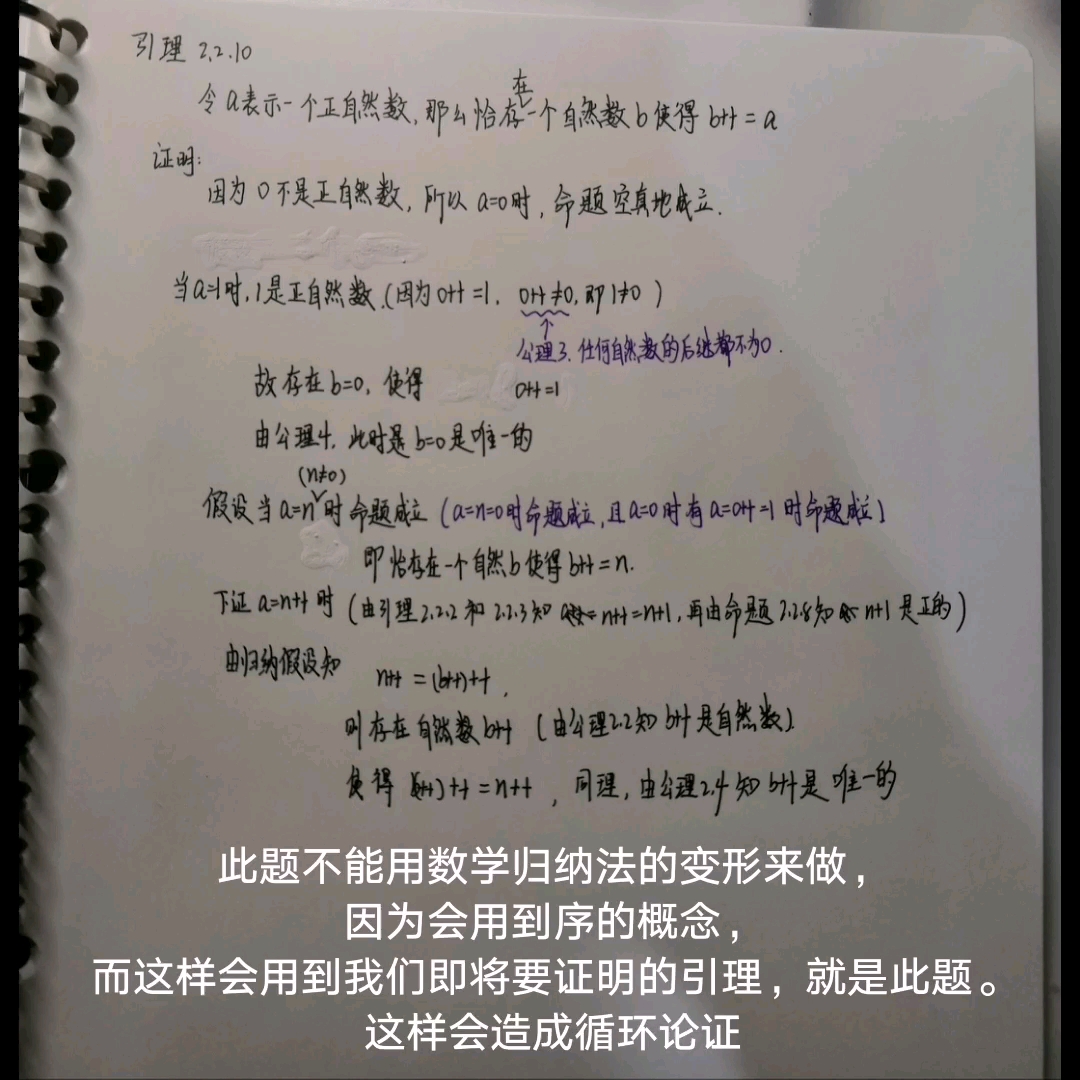 引理 2.2.10
令 a 表示一个正自然数,那么恰存在一个自然数 b 使得 b++ = a
证明:
因为 0 不是正自然数,所以 a=0 时,命题空真地成立.
当 a=1 时,1 是正自然数.(因为 0++ =1, 0++ ≠0, 即 1≠0 )
↑
公理3. 任何自然数的后继都不为0.
故存在 b=0, 使得 0++ =1
由公理4, 此时是 b=0 是唯一的
(n≠0)
假设当 a=n 时命题成立 (a=n=0时命题成立,且 a=0 时有 a=0++ =1 时命题成立)
即恰存在一个自然 b 使得 b++ = n.
下证 a=n++ 时 (由引理 2.2.2 和 2.2.3 知 n++ = n+1, 再由命题 2.2.8 知 n+1 是正的)
由归纳假设知 n++ = (b++)++ ,
则存在自然数 b++ (由公理2.2知 b++ 是自然数)
使得 (b++)++ = n++ , 同理, 由公理2.4 知 b++ 是唯一的
此题不能用数学归纳法的变形来做,
因为会用到序的概念,
而这样会用到我们即将要证明的引理,就是此题。
这样会造成循环论证